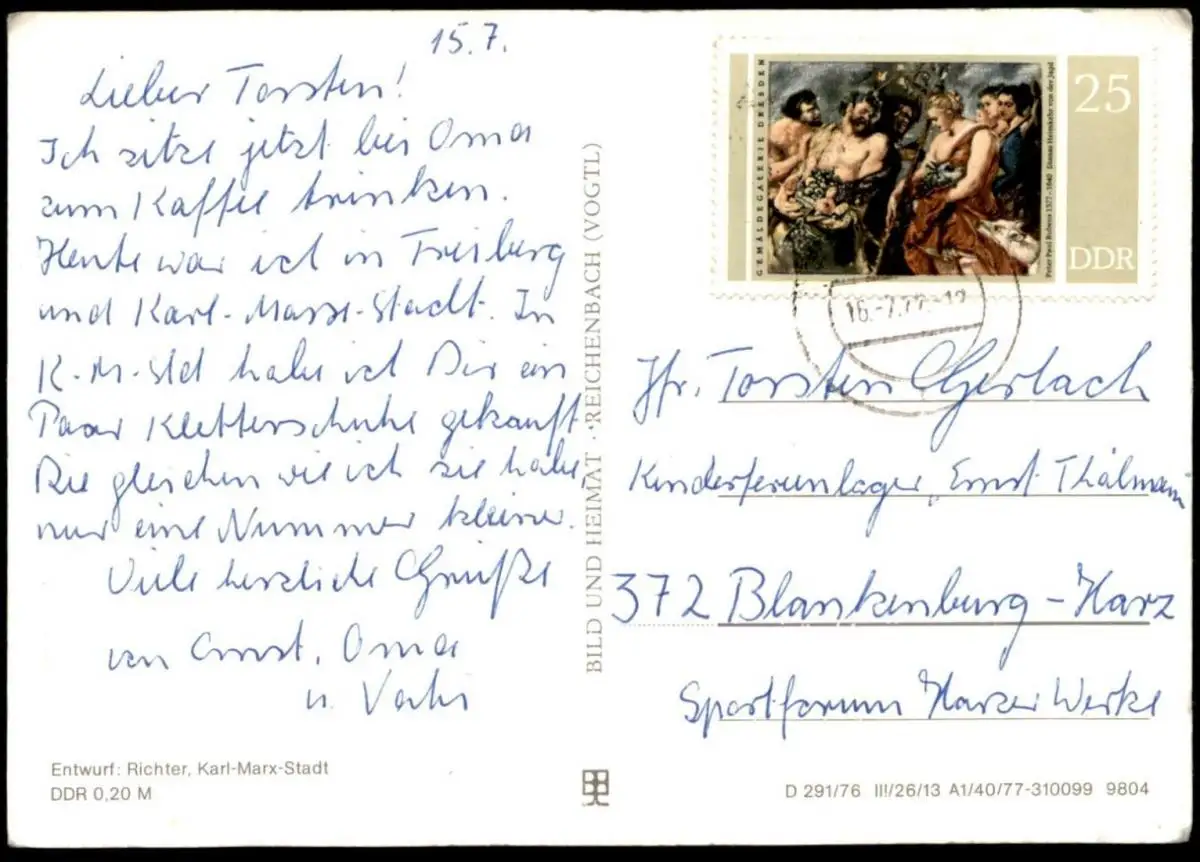 15.7.
Lieber Torsten!
Ich sitze jetzt bei Oma
zum Kaffee trinken.
Heute war ich in Freiberg
und Karl-Marx-Stadt. In
K-M-Std habe ich Dir ein
Paar Kletterschuhe gekauft
Die gleichen wie ich sie habe,
nur eine Nummer kleiner.
Viele herzliche Grüße
von Oma
u. Vati
Entwurf: Richter, Karl-Marx-Stadt
DDR 0,20 M
BILD UND HEIMAT · REICHENBACH (VOGTL)
GEMÄLDEGALERIE DRESDEN
Peter Paul Rubens 1577-1640 Dianas Heimkehr von der Jagd
25
DDR
16.-7.77-12
Jfr. Torsten Gerlach
Kinderferienlager „Ernst Thälmann
372 Blankenburg-Harz
Sportforum Harzer Werke
D 291/76 III/26/13 A1/40/77-310099 9804